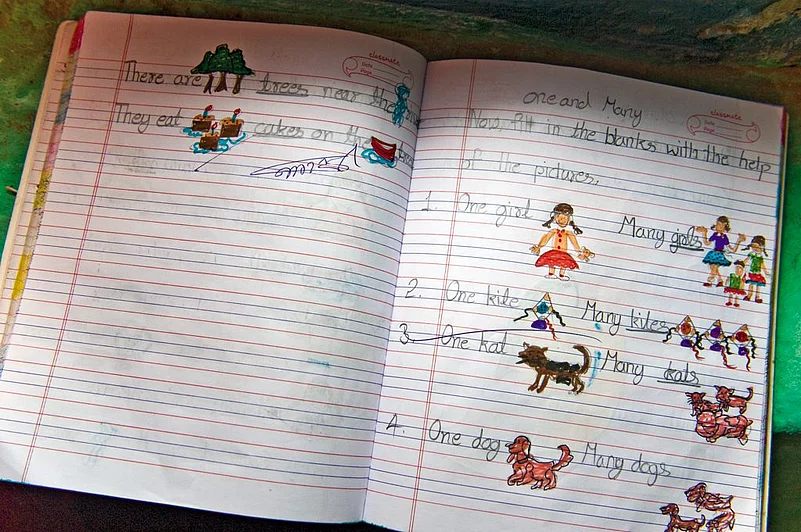 classmate
Date
Page
There are trees near the
They eat cakes on the
classmate
Date
Page
One and Many
Now, fill in the blanks with the help
of the pictures.
1. One girl Many girls
2. One kite Many kites
3. One kat Many kats
4. One dog Many dogs